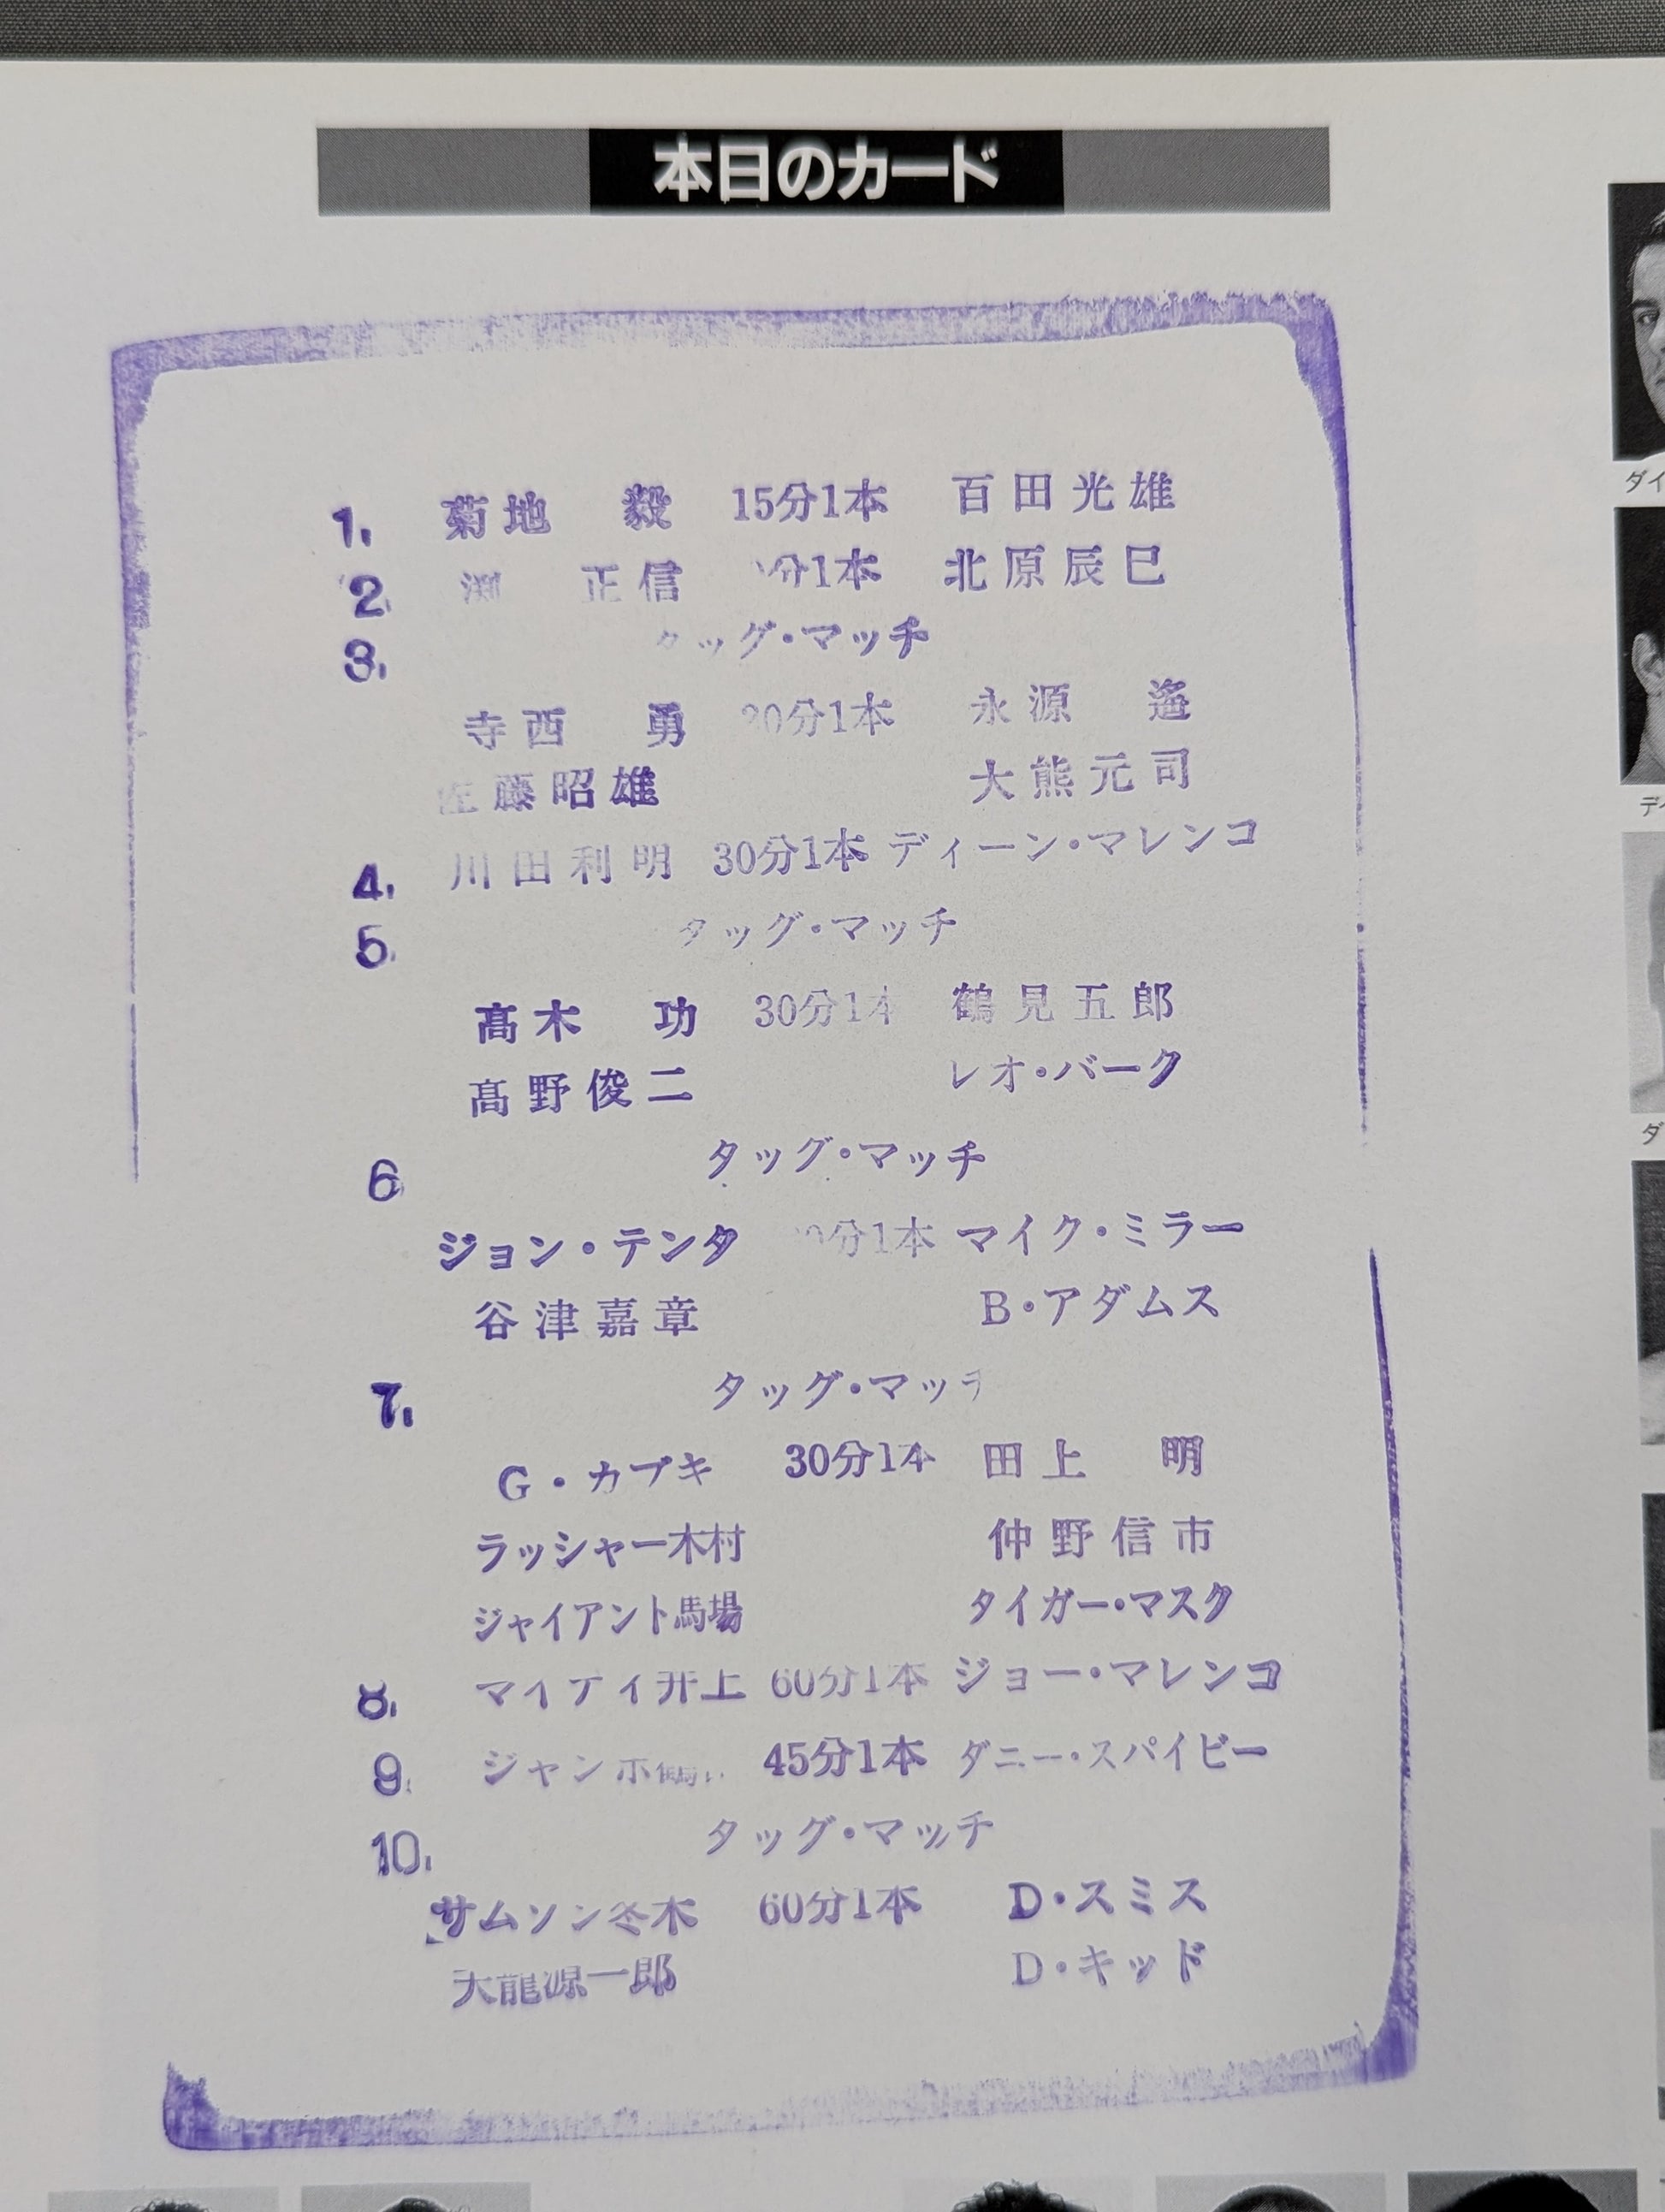 本日のカード
1. 菊地 毅 15分1本 百田光雄
2. 渕 正信 分1本 北原辰巳
3. タッグ・マッチ
寺西 勇 20分1本 永源 遙
佐藤昭雄 大熊元司
4. 川田利明 30分1本 ディーン・マレンコ
5. タッグ・マッチ
髙木 功 30分1本 鶴見五郎
髙野俊二 レオ・バーク
6 タッグ・マッチ
ジョン・テンタ 分1本 マイク・ミラー
谷津嘉章 B・アダムス
7. タッグ・マッチ
G・カブキ 30分1本 田上 明
ラッシャー木村 仲野信市
ジャイアント馬場 タイガー・マスク
8. マイティ井上 60分1本 ジョー・マレンコ
9. ジャンボ鶴 45分1本 ダニー・スパイビー
10. タッグ・マッチ
サムソン冬木 60分1本 D・スミス
天龍源一郎 D・キッド
ダイ
デ
ダ